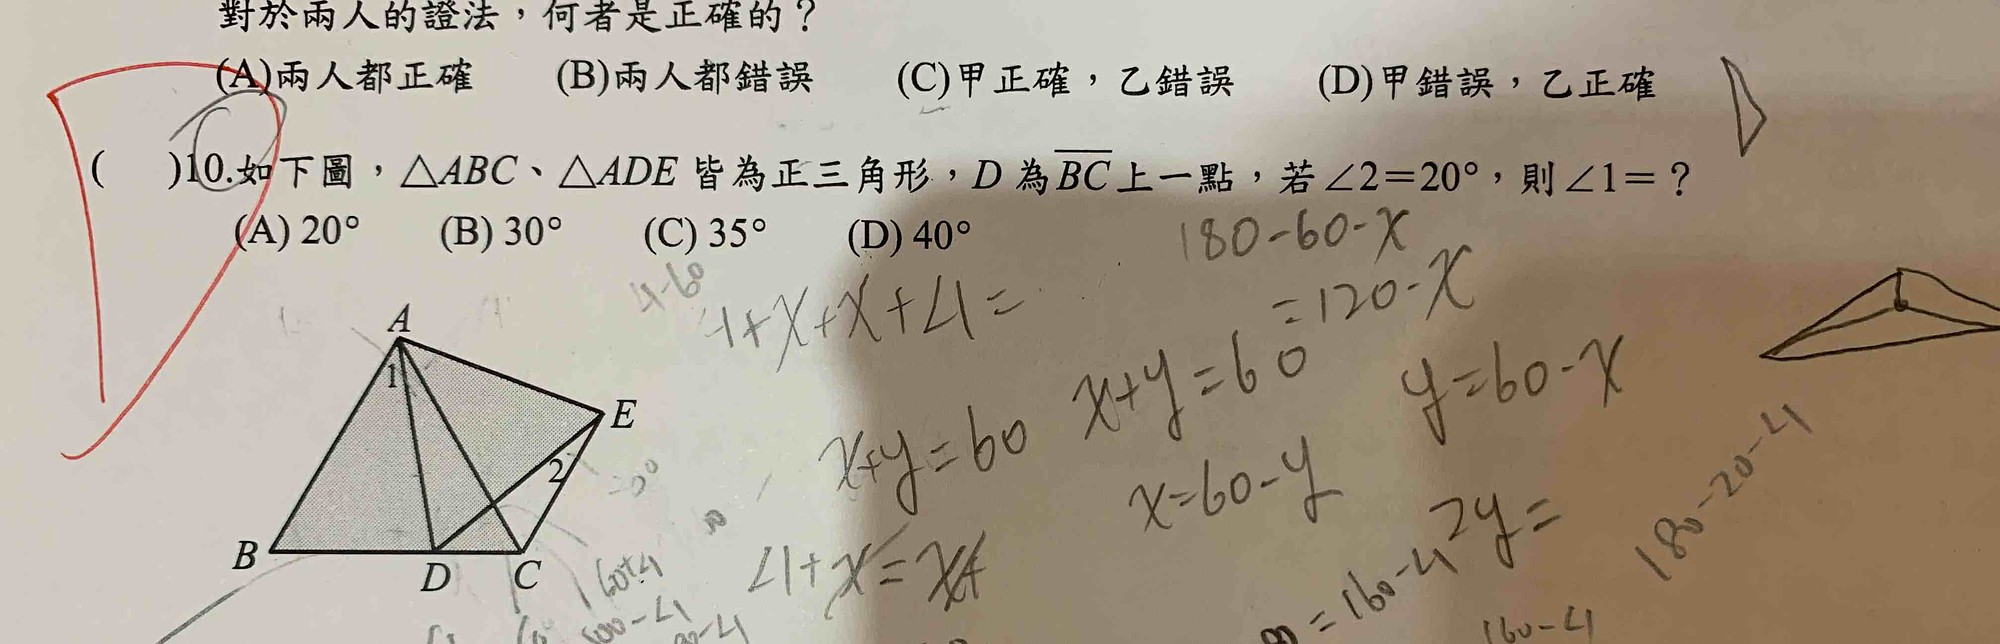 對於兩人的證法，何者是正確的？
(A)兩人都正確 (B)兩人都錯誤 (C)甲正確，乙錯誤 (D)甲錯誤，乙正確
( )10.如下圖，△ABC、△ADE 皆為正三角形，D 為BC上一點，若∠2=20°，則∠1=？
(A) 20° (B) 30° (C) 35° (D) 40°
180-60-x
=120-x
1+x+x+∠1=
x+y=60
y=60-x
x+y=60
x=60-y
2y=
180-20-∠1
∠1+x=x+
=160-∠1
160-∠1
A
1
E
2
B
D
C